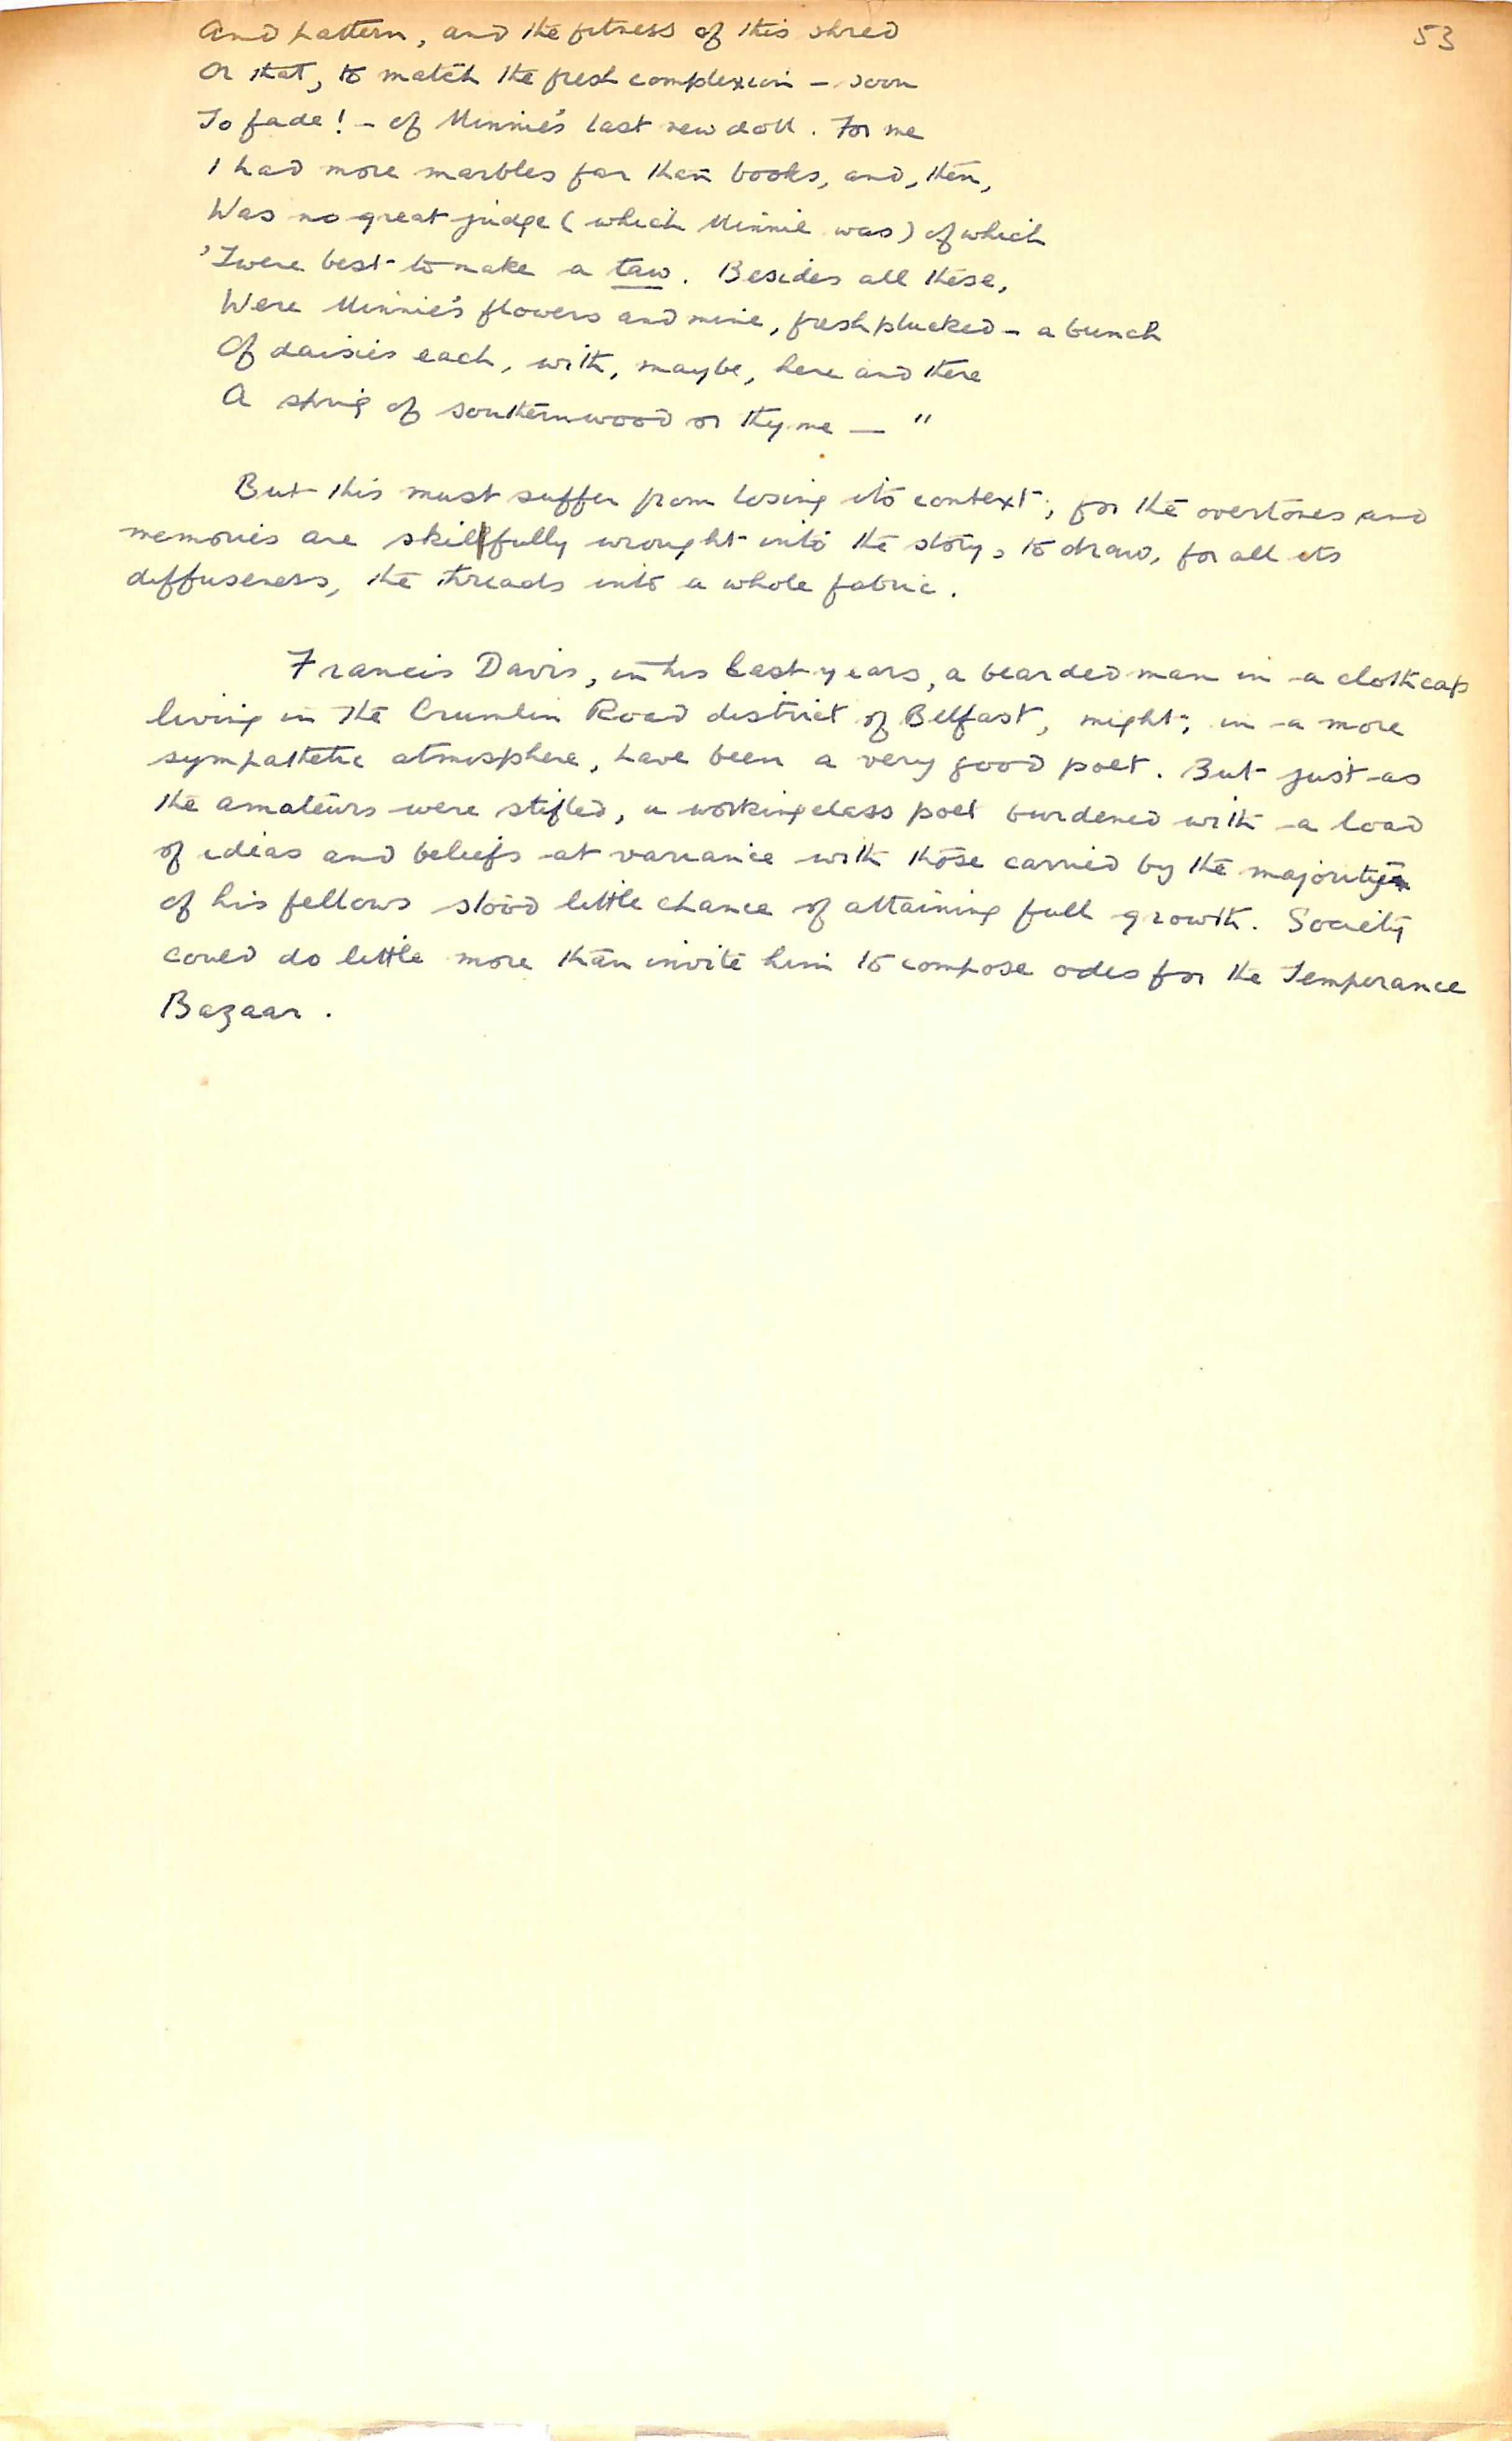 53
And pattern, and the fitness of this shred
Or that, to match the fresh complexion – soon
To fade! – of Minnie's last new doll. For me
I had more marbles far than books, and, then,
Was no great judge (which Minnie was) of which
'Twere best to make a taw. Besides all these,
Were Minnie's flowers and mine, fresh plucked – a bunch
Of daisies each, with, maybe, here and there
A sprig of southernwood or thyme — "
But this must suffer from losing its context; for the overtones and
memories are skilfully wrought into the story, to draw, for all its
diffuseness, the threads into a whole fabric.
Francis Davis, in his last years, a bearded man in a cloth cap
living in the Crumlin Road district of Belfast, might, in a more
sympathetic atmosphere, have been a very good poet. But just as
the amateurs were stifled, a working class poet burdened with a load
of ideas and beliefs at variance with those carried by the majority
of his fellows stood little chance of attaining full growth. Society
could do little more than invite him to compose odes for the Temperance
Bazaar.